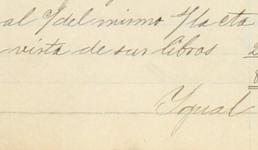 al del mismo
vista de sus libros 2
8
Igual